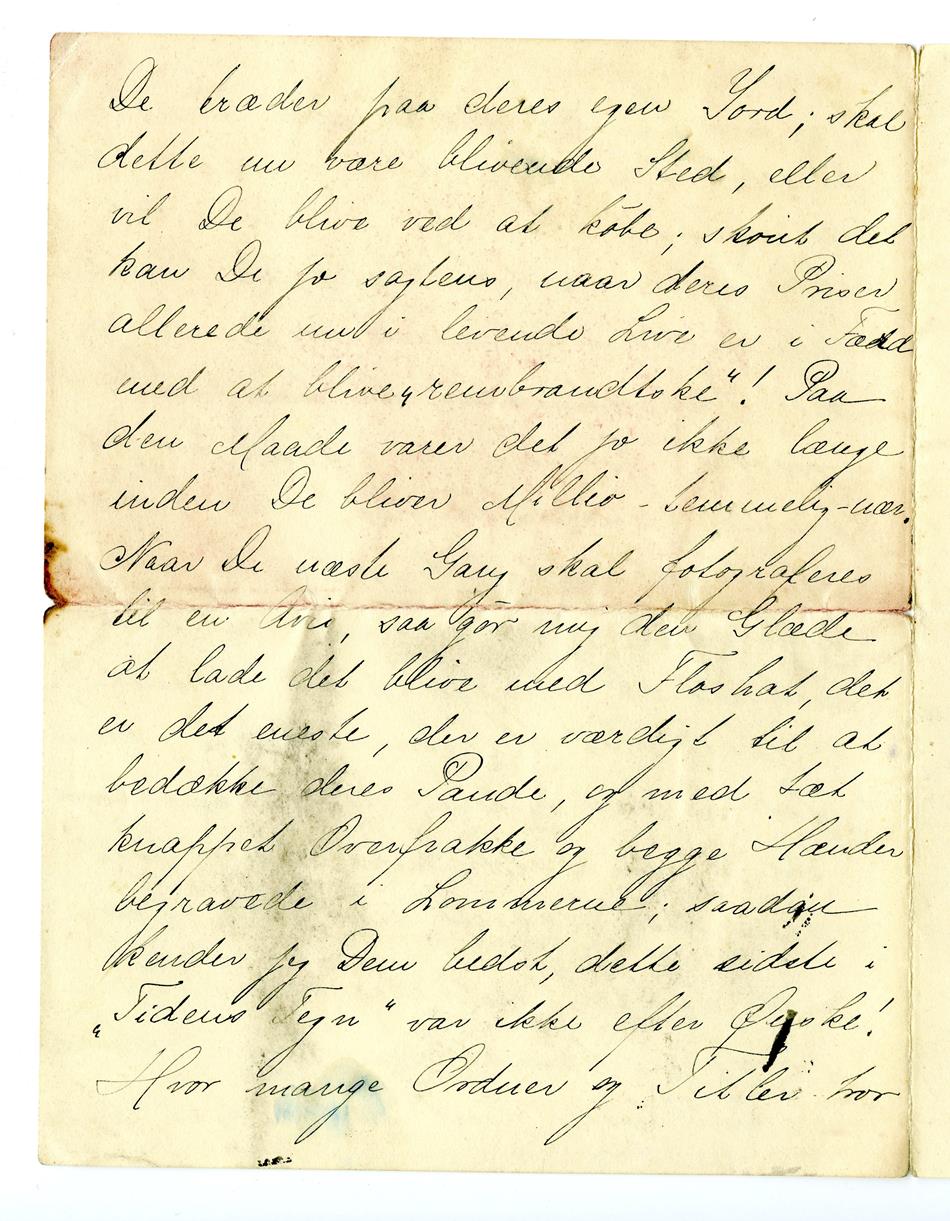 De træder paa deres egen Jord; skal
dette nu være blivende Sted, eller
vil De blive ved at köbe; skönt det
kan De jo sagtens, naar deres Priser
allerede nu i levende Live er i Fædd
med at blive „rembrandtske“! Paa
den Maade varer det jo ikke længe
inden De bliver Millio - temmelig-nær.
Naar De næste Gang skal fotograferes
til en Avis, saa gör mig den Glæde
at lade det blive med Floshat, det
er det eneste, der er værdigt til at
bedække deres Pande, og med tæt
knappet Overfrakke og begge Hænder
begravede i Lommerne; saadan
kender jeg Dem bedst, dette sidste i
„Tidens Tegn“ var ikke efter Ønske!
Hvor mange Ordner og Titler tror